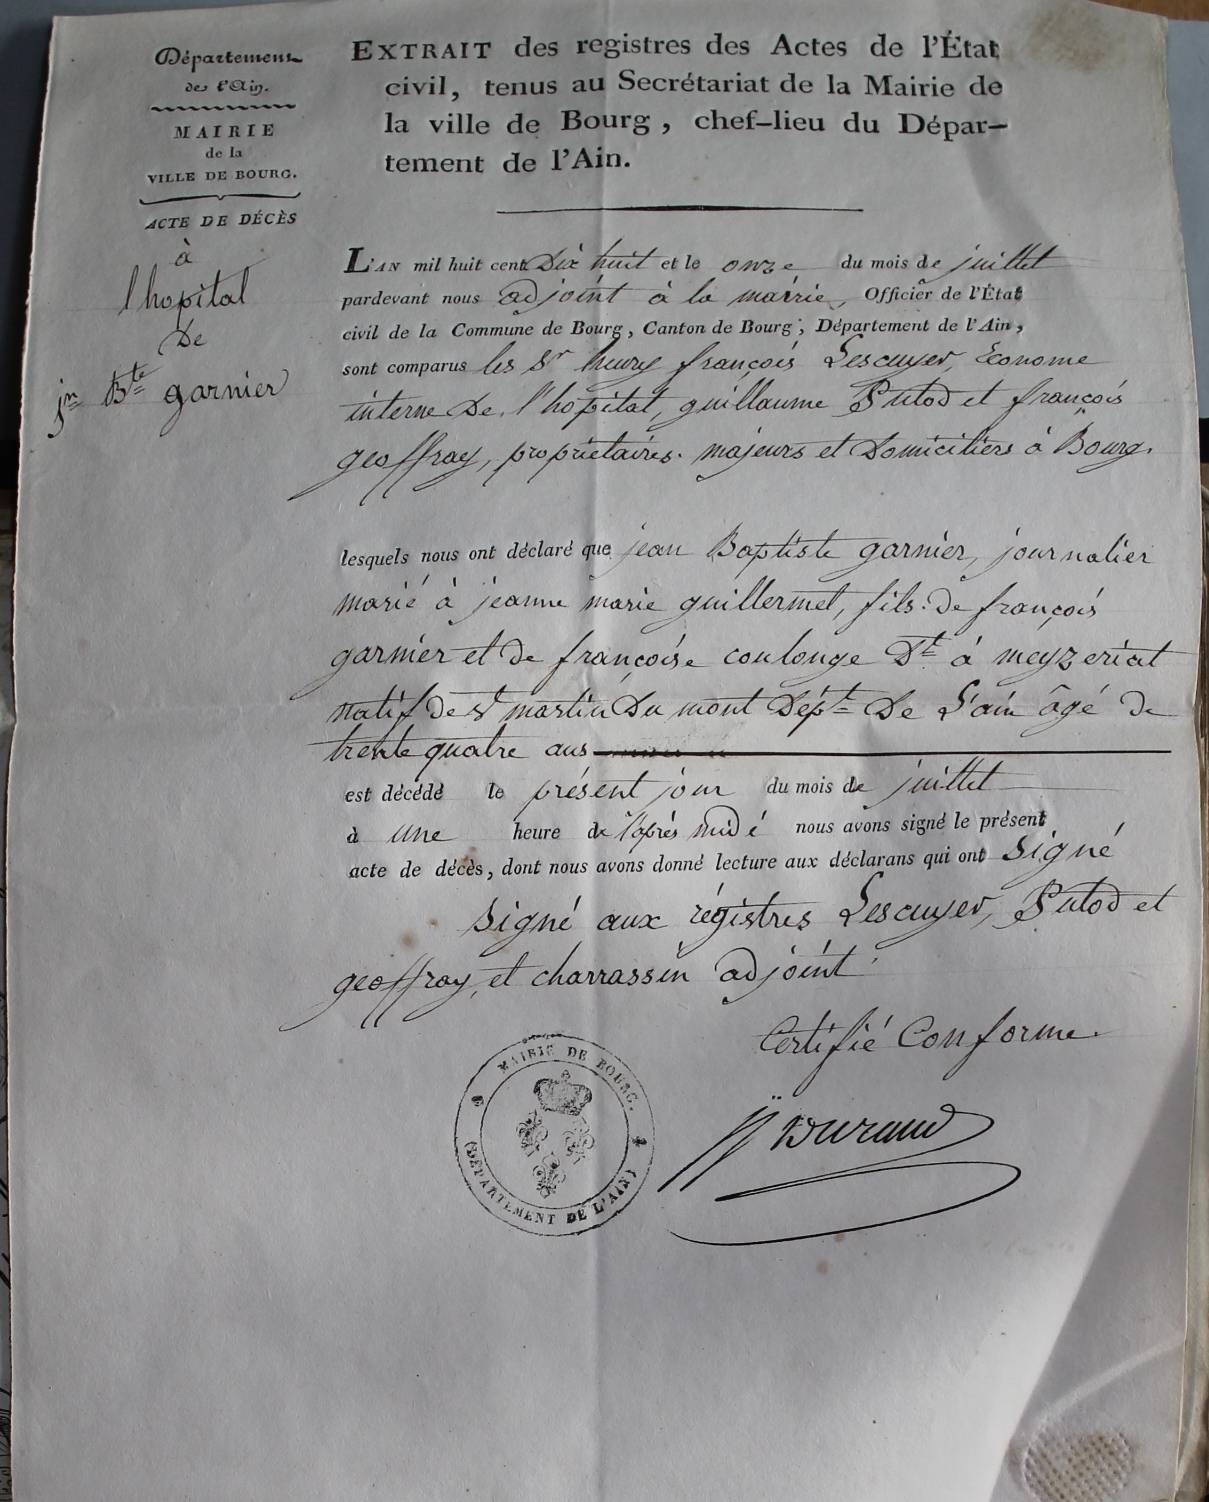 Département
de l'Ain.
MAIRIE
de la
VILLE DE BOURG.
ACTE DE DÉCÈS
à
l'hopital
De
jn Bte garnier
EXTRAIT des registres des Actes de l'État
civil, tenus au Secrétariat de la Mairie de
la ville de Bourg, chef-lieu du Dépar-
tement de l'Ain.
L'AN mil huit cent Dix huit et le onze du mois de juillet
pardevant nous adjoint à la mairie, Officier de l'État
civil de la Commune de Bourg, Canton de Bourg, Département de l'Ain,
sont comparus les Sr henry françois Lescuyer, Econome
interne De l'hopital, guillaume Putod et françois
geoffray, propriétaires. majeurs et Domiciliers à Bourg.
lesquels nous ont déclaré que jean Baptiste garnier, journalier
marié à jeanne marie guillermet, fils. De françois
garnier et de françoise coulonge Dt à meyzeriat
natif de St martin Du mont Dépt De L'ain âgé de
trente quatre ans
est décédé le présent jour du mois de juillet
à une heure de l'après midé nous avons signé le présent
acte de décès, dont nous avons donné lecture aux déclarans qui ont Signé
Signé aux régistres Lescuyer, Putod et
geoffray, et charrassin adjoint.
Certifié Conforme.
Durand
MAIRIE DE BOURG.
(DÉPARTEMENT DE L'AIN)